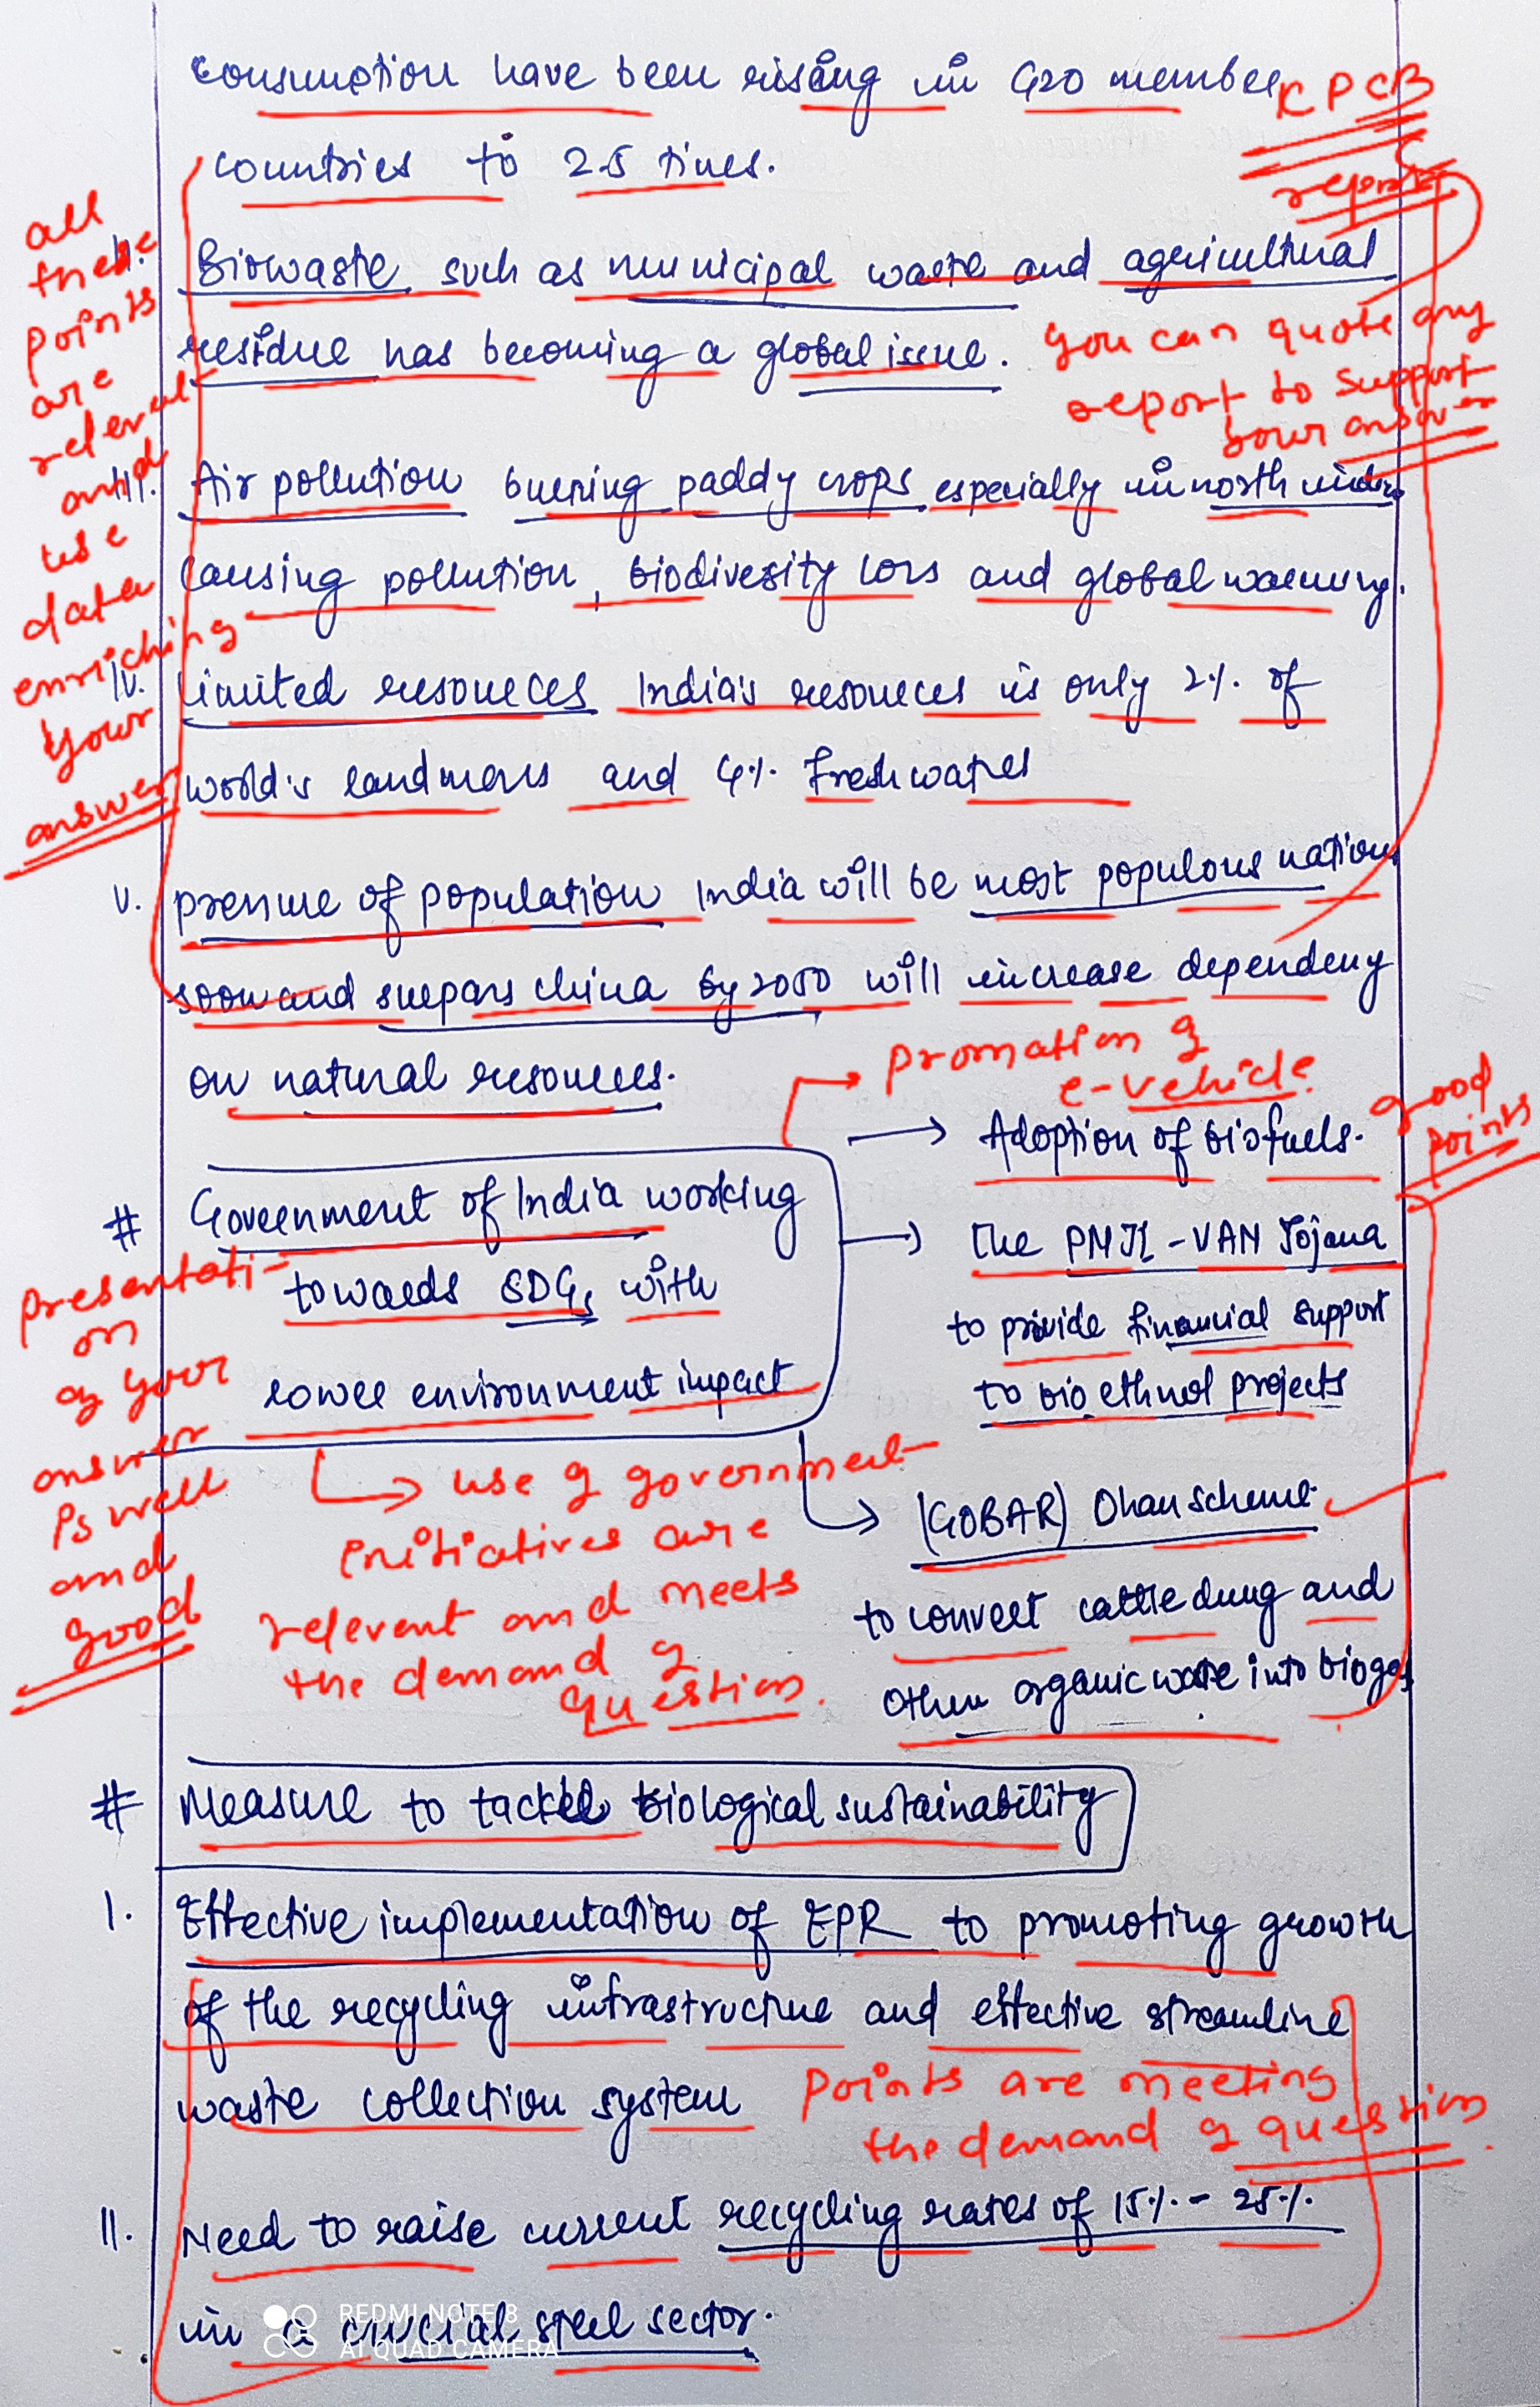 consumption have been rising in G20 member
CPCB
report
countries to 2.5 times.
all
these
points
are
relevant
and
use
data
enriching
your
answer
II. Biowaste such as municipal waste and agricultural
residue has becoming a global issue.
you can quote any
report to support
your answer
III. Air pollution burning paddy crops especially in north
causing pollution, biodivesity loss and global warming.
IV. limited resources India's resources is only 2% of
world's landmass and 4% fresh water
V. pressure of population India will be most populous nation
soon and surpass china by 2050 will increase dependeny
on natural resources.
promation of
e-vehicle
good
points
→ Adoption of biofuels.
# Government of India working
towards SDGs with
lower environment impact
→ The PMJI-VAN Yojana
to provide financial support
to bio ethnol projects
presentati-
on
of your
answer
is well
and
good
→ use of government
initiatives are
relevent and meets
the demand of
question.
→ (GOBAR) Dhan scheme
to convert cattle dung and
other organic waste into biogas
# Measure to tackle biological sustainability
I. Effective implementation of EPR to promoting growth
of the recycling infrastructure and effective streamline
waste collection system
points are meeting
the demand of question.
II. Need to raise current recycling rates of 15% - 25%
in a crucial steel sector.
REDMI NOTE 8
AI QUAD CAMERA